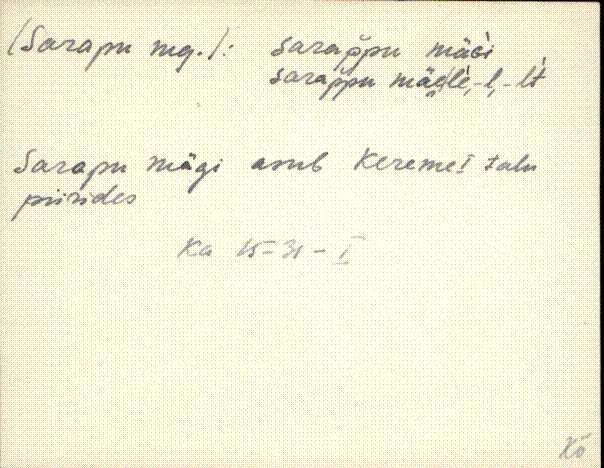 (Sarapu mg.): sarap̆pu mäGì
sarap̆pu mäelè, -l, -lt
Sarapu mägi asub Kereme I talu
piirides
Ka 15-31-I
Kö